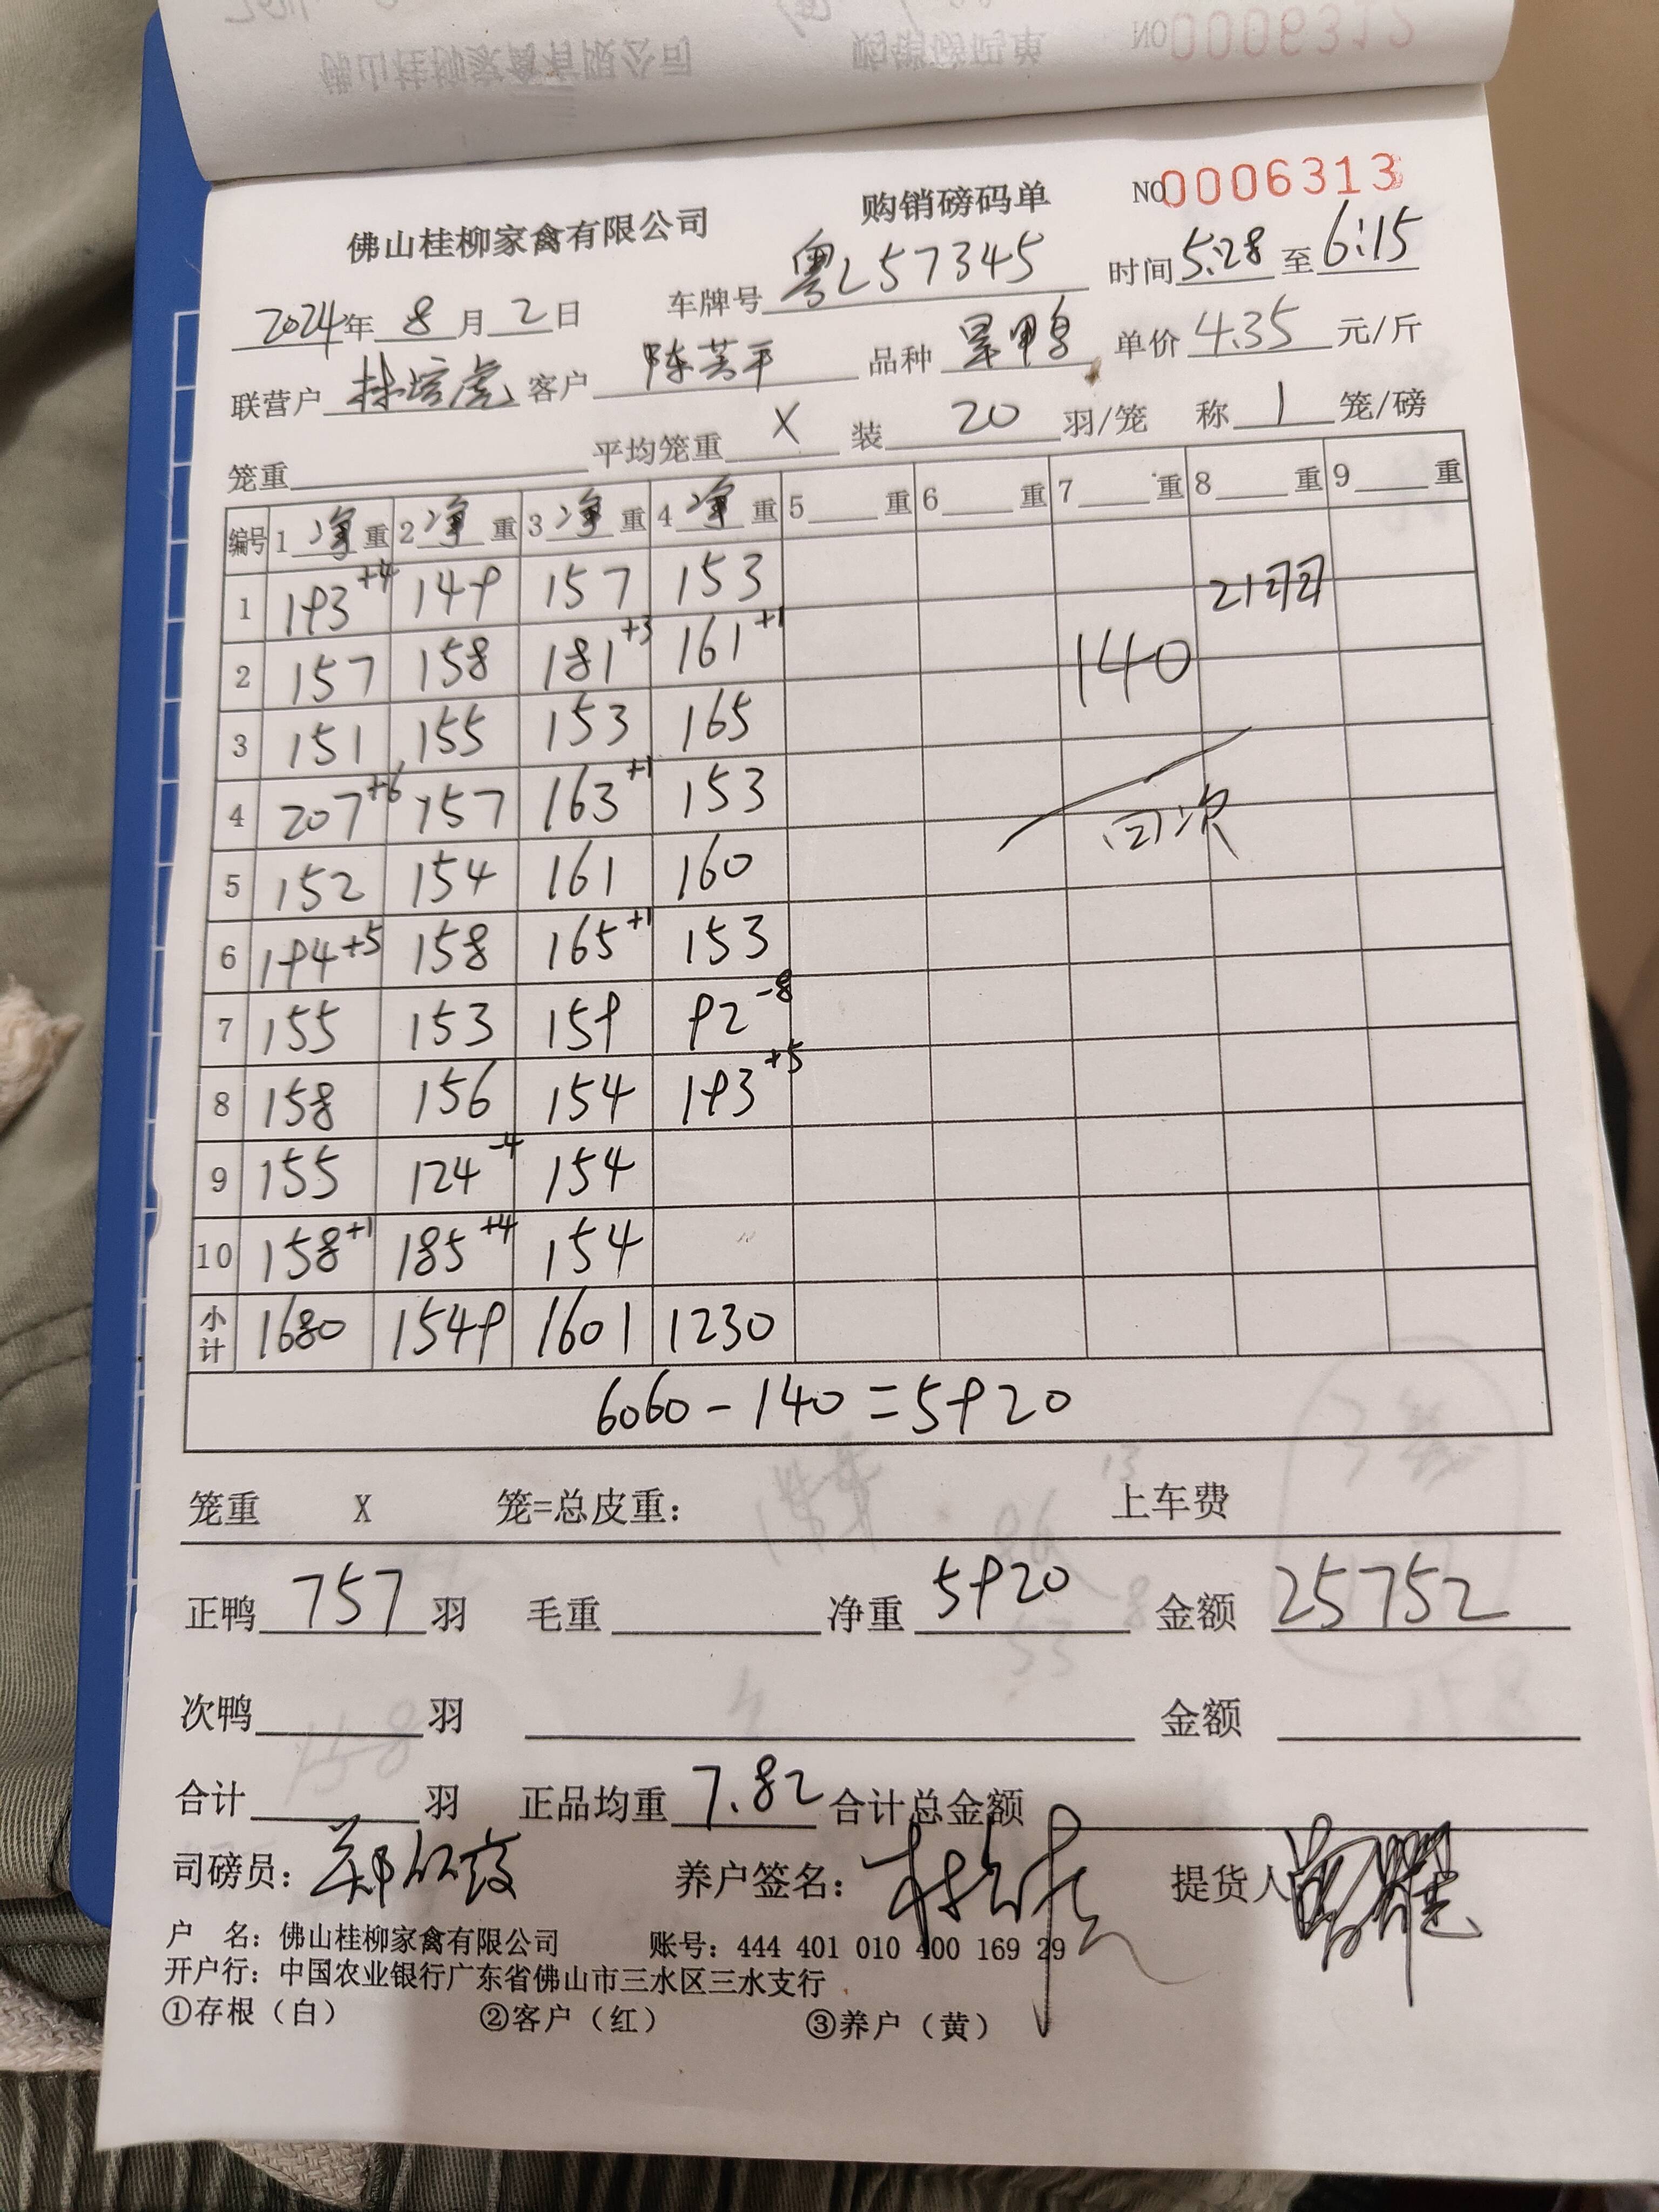 佛山桂柳家禽有限公司 购销磅码单 NO0006313
2024年 8 月 2 日 车牌号 粤L57345 时间 5:28 至 6:15
联营户 林培虎 客户 陈芙平 品种 旱鸭 单价 4.35 元/斤
笼重 平均笼重 X 装 20 羽/笼 称 1 笼/磅
编号 1 净 重 2 净 重 3 净 重 4 净 重 5 重 6 重 7 重 8 重 9 重
1 193+4 149 157 153 21羽
2 157 158 181+3 161+1 140
3 151 155 153 165
4 207+6 157 163+1 153 回次
5 152 154 161 160
6 194+5 158 165+1 153
7 155 153 159 92-8
8 158 156 154 193+5
9 155 124-4 154
10 158+1 185+4 154
小计 1680 1549 1601 1230
6060-140=5920
笼重 X 笼=总皮重: 上车费
正鸭 757 羽 毛重 净重 5920 金额 25752
次鸭 羽 金额
合计 羽 正品均重 7.82 合计总金额
司磅员: 养户签名: 提货人
户 名: 佛山桂柳家禽有限公司 账号: 444 401 010 400 169 29
开户行: 中国农业银行广东省佛山市三水区三水支行
①存根(白) ②客户(红) ③养户(黄)